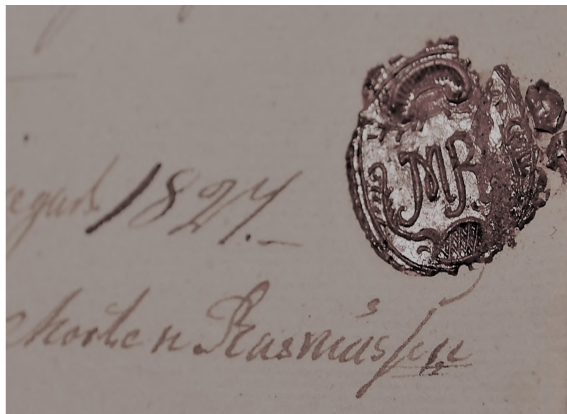 1827.
MR
Morten Rasmussen